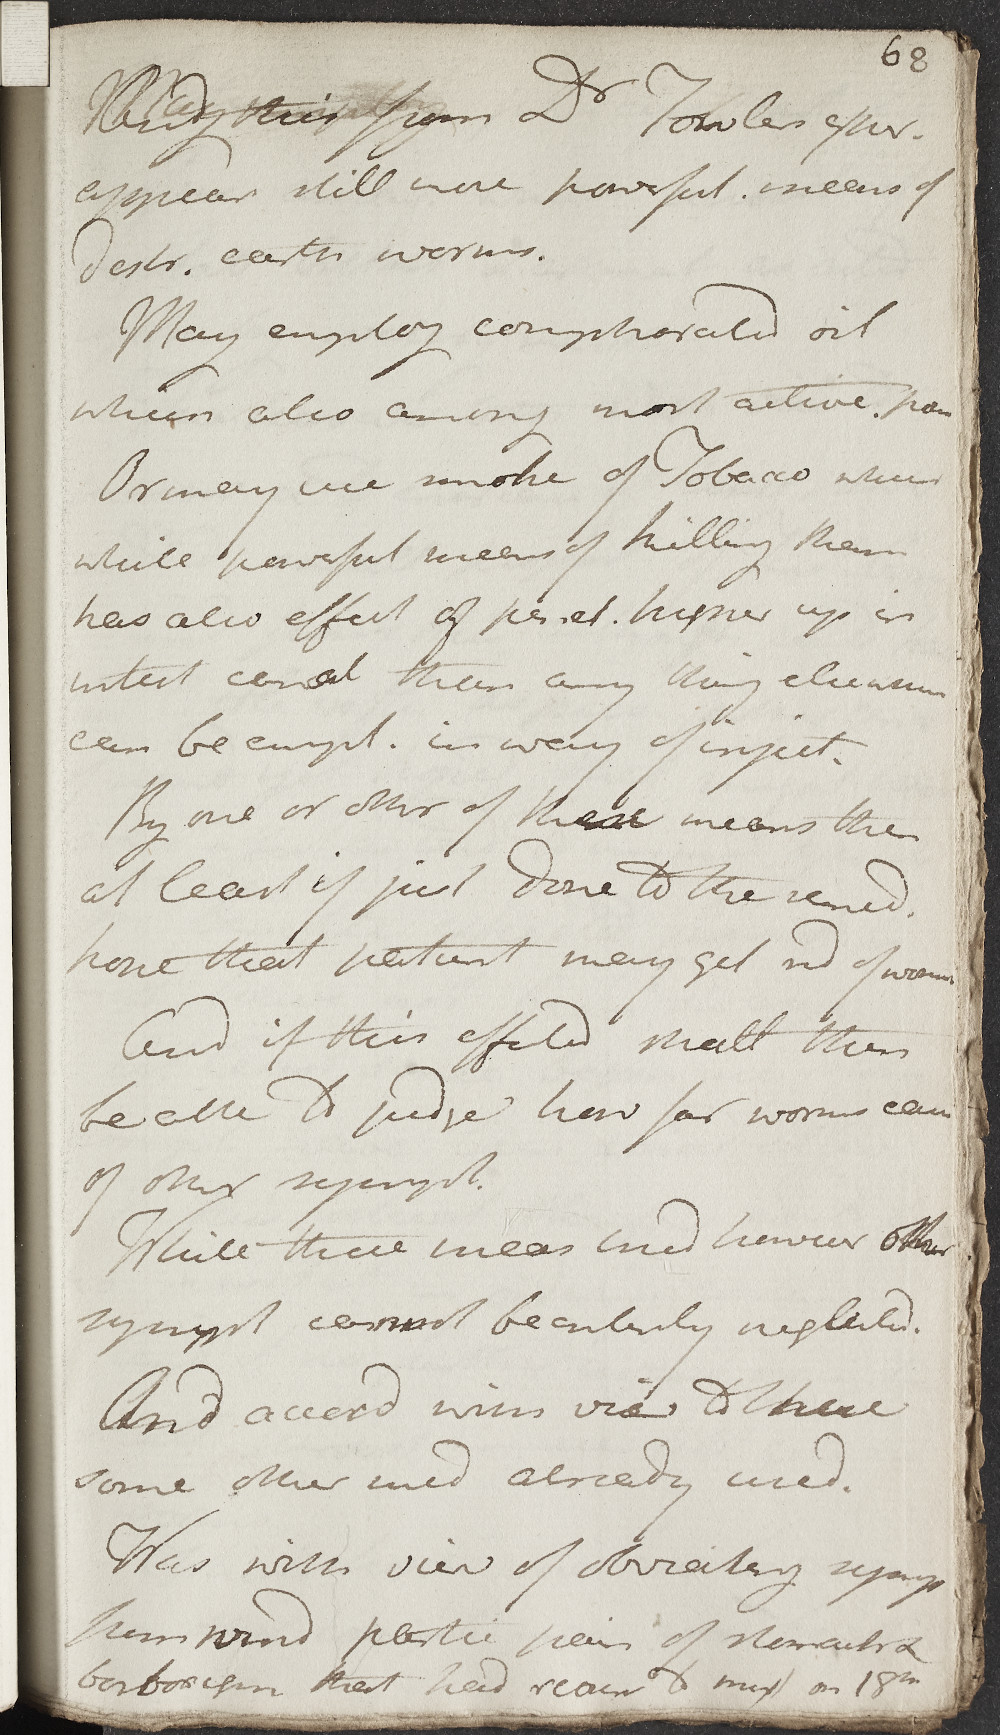 68
And this from Dr Fowlers exper.
appears still more powerful. means of
destr. earth worms.
May employ camphorated oil
which also among most active. pois
Or may use smoke of Tobacco which
while powerful means of killing them
has also effect of penet. higher up in
intest canal than any thing else which
can be empl. in way of inject.
By one or other of these means then
at least if just done to the remed.
hope that patient may get rid of worms
And if this effected shall then
be able to judge how far worms caus
of other sympt.
While these meas used however other
sympt cannot be entirely neglected.
And accord with view to these
some other med already used.
Was with view of obviating symp
from wind partic pain of stomach &
borborygm that had recour to mixt on 18th